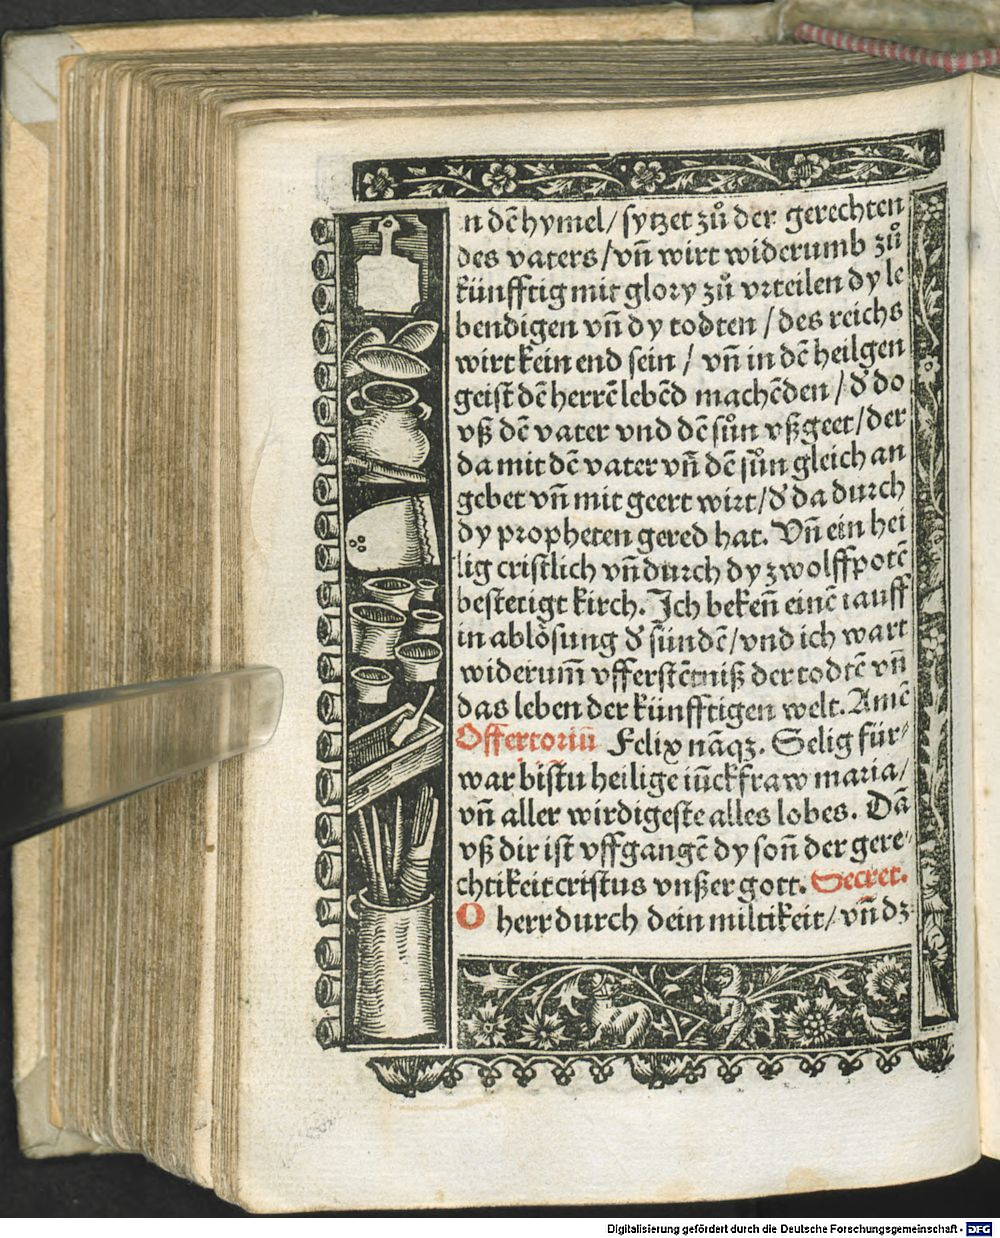 n dē hymel/ sytzet zů der gerechten
des vaters/vñ wirt widerumb zů
künfftig mit glory zů vrteilen dy le
bendigen vñ dy todten / des reichs
wirt kein end sein / vñ in dē heilgen
geist dē herrē lebēd machēden / đ do
vß dē vater vnd dē sůn vßgeet/der
da mit dē vater vñ dē sůn gleich an
gebet vñ mit geert wirt/đ da durch
dy propheten gered hat. Vñ ein hei
lig cristlich vñ durch dy zwolffpotē
bestetigt kirch. Jch bekeñ einē tauff
in ablősung đ sündē/vnd ich wart
widerum̄ vfferstētniß der todtē vñ
das leben der künfftigen welt. Amē
Offertoriū Felix nāqʒ. Selig für⸗
war bistu heilige iūckfraw maria/
vñ aller wirdigeste alles lobes. Dā
vß dir ist vffgangē dy soñ der gere⸗
chtikeit cristus vnßer gott. Secret.
O herr durch dein miltikeit/ vñ dʒ
Digitalisierung gefördert durch die Deutsche Forschungsgemeinschaft - DFG